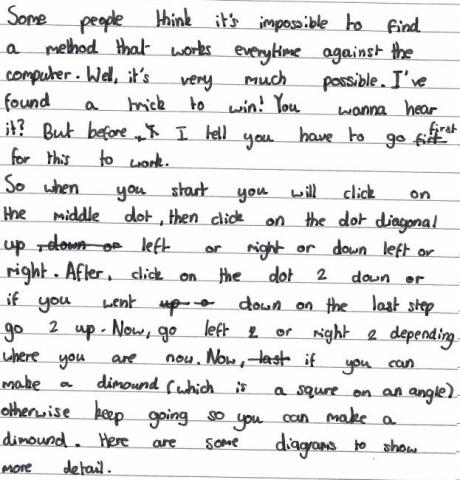 Some people think it's impossible to find
a method that works everytime against the
computer. Well, it's very much possible. I've
found a trick to win! You wanna hear
it? But before I tell you have to go first
for this to work.
So when you start you will click on
the middle dot, then click on the dot diagonal
up down or left or right or down left or
right. After, click on the dot 2 down or
if you went up o down on the last step
go 2 up. Now, go left 2 or right 2 depending
where you are now. Now, last if you can
make a dimound (which is a squre on an angle)
otherwise keep going so you can make a
dimound. Here are some diagrams to show
more detail.